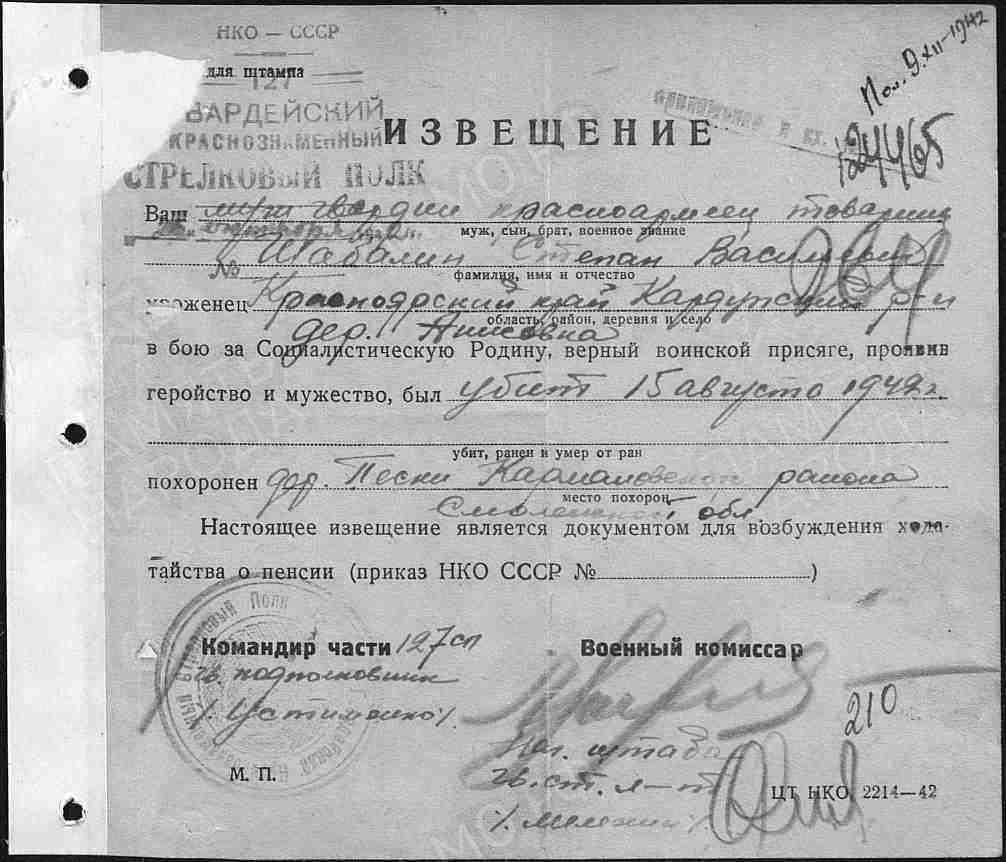 НКО — СССР
для штампа
127
ВАРДЕЙСКИЙ
КРАСНОЗНАМЕННЫЙ
СТРЕЛКОВЫЙ ПОЛК
Пол. 9.XII-1942
24465
ИЗВЕЩЕНИЕ
Ваш муж гвардии красноармеец товарищ
муж, сын, брат, военное звание
№
Шабалин Степан Васильевич
фамилия, имя и отчество
уроженец Краснодарский край р-н
область, район, деревня и село
дер.
в бою за Социалистическую Родину, верный воинской присяге, проявив
геройство и мужество, был убит 15 августа 1942 г.
убит, ранен и умер от ран
похоронен дер. Пески Кармановского района
место похорон
Смоленской обл
Настоящее извещение является документом для возбуждения хода-
тайства о пенсии (приказ НКО СССР №)
Командир части 127 сп
гв. подполковник
/Устименко/.
Военный комиссар
Нач. штаба
гв. ст. л-т
210
М. П.
ЦТ НКО 2214—42